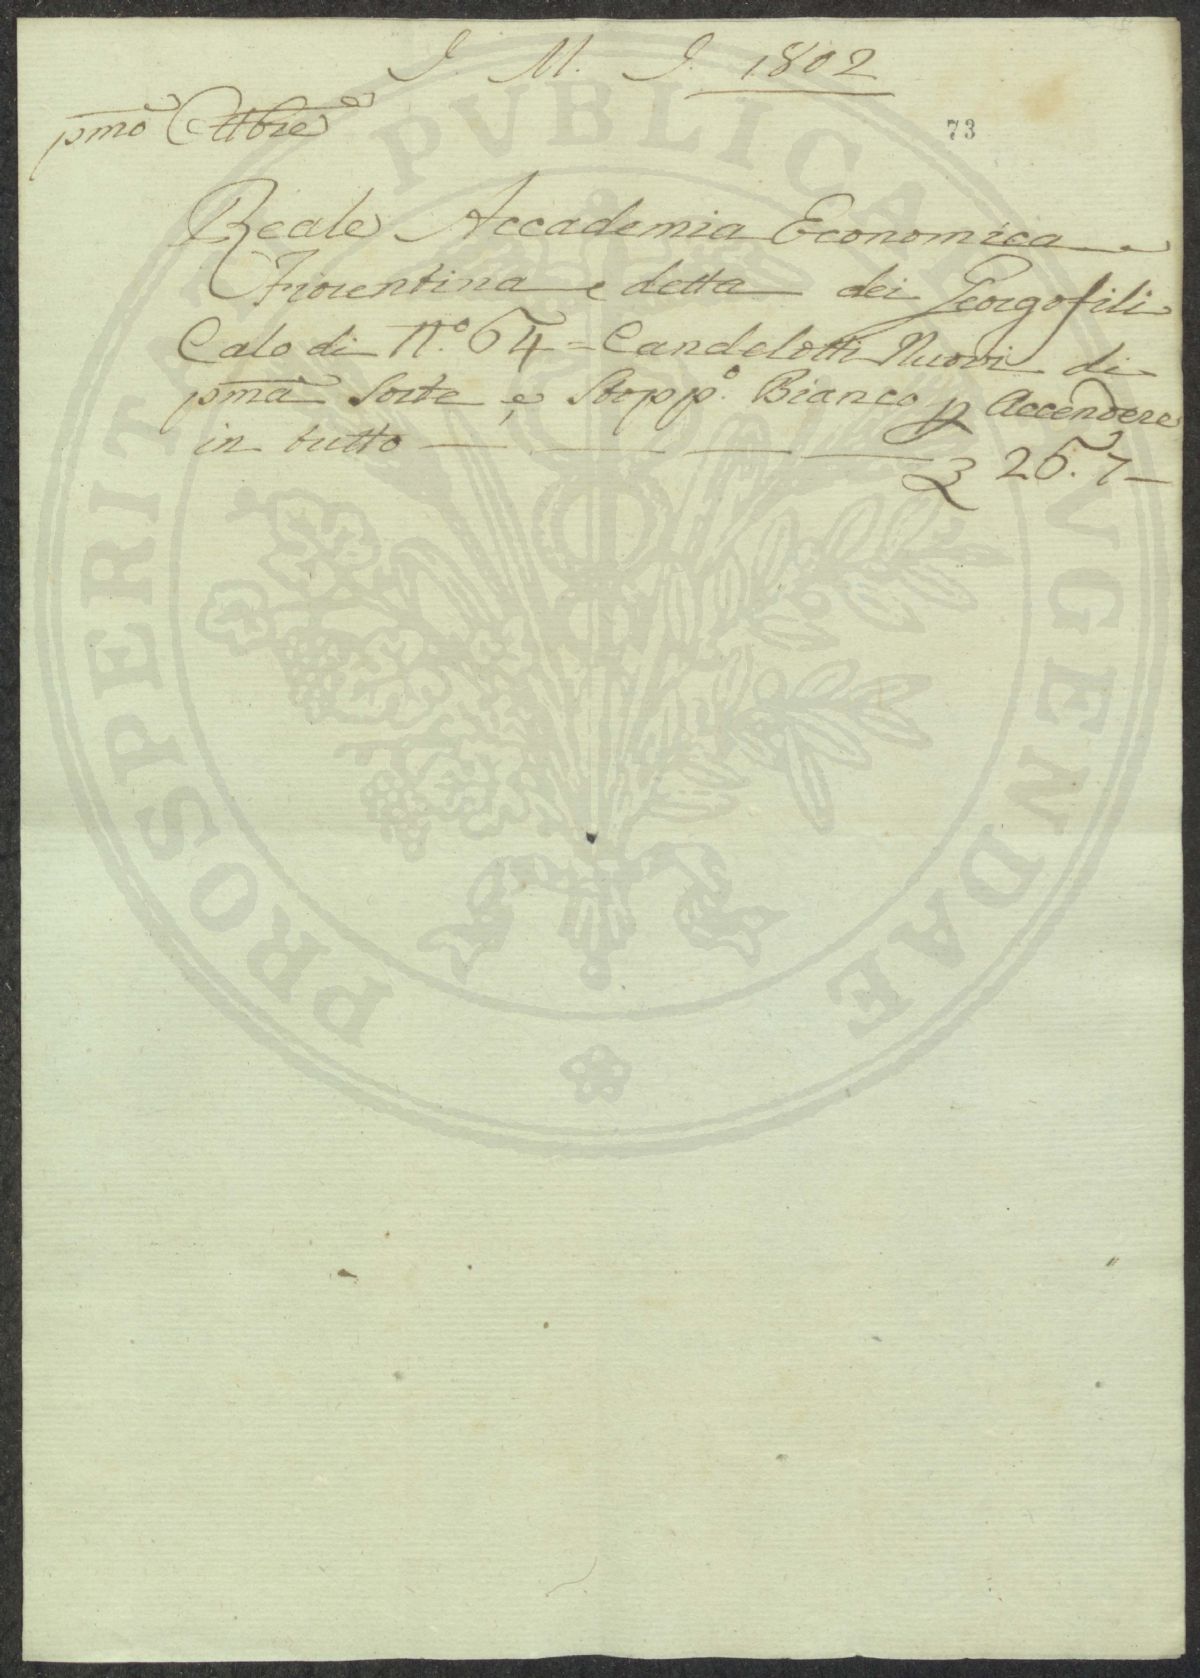 J. M. J. 1802
pmo Ottbre
73
Reale Accademia Economica
Fiorentina e detta dei Georgofili
Calo di N.° 64 = Candelotti Nuovi di
pma Sorte e Stopp.° Bianco p Accendere
in tutto £ 26. 7 —
PROSPERITATI PVBLICAE AVGENDAE